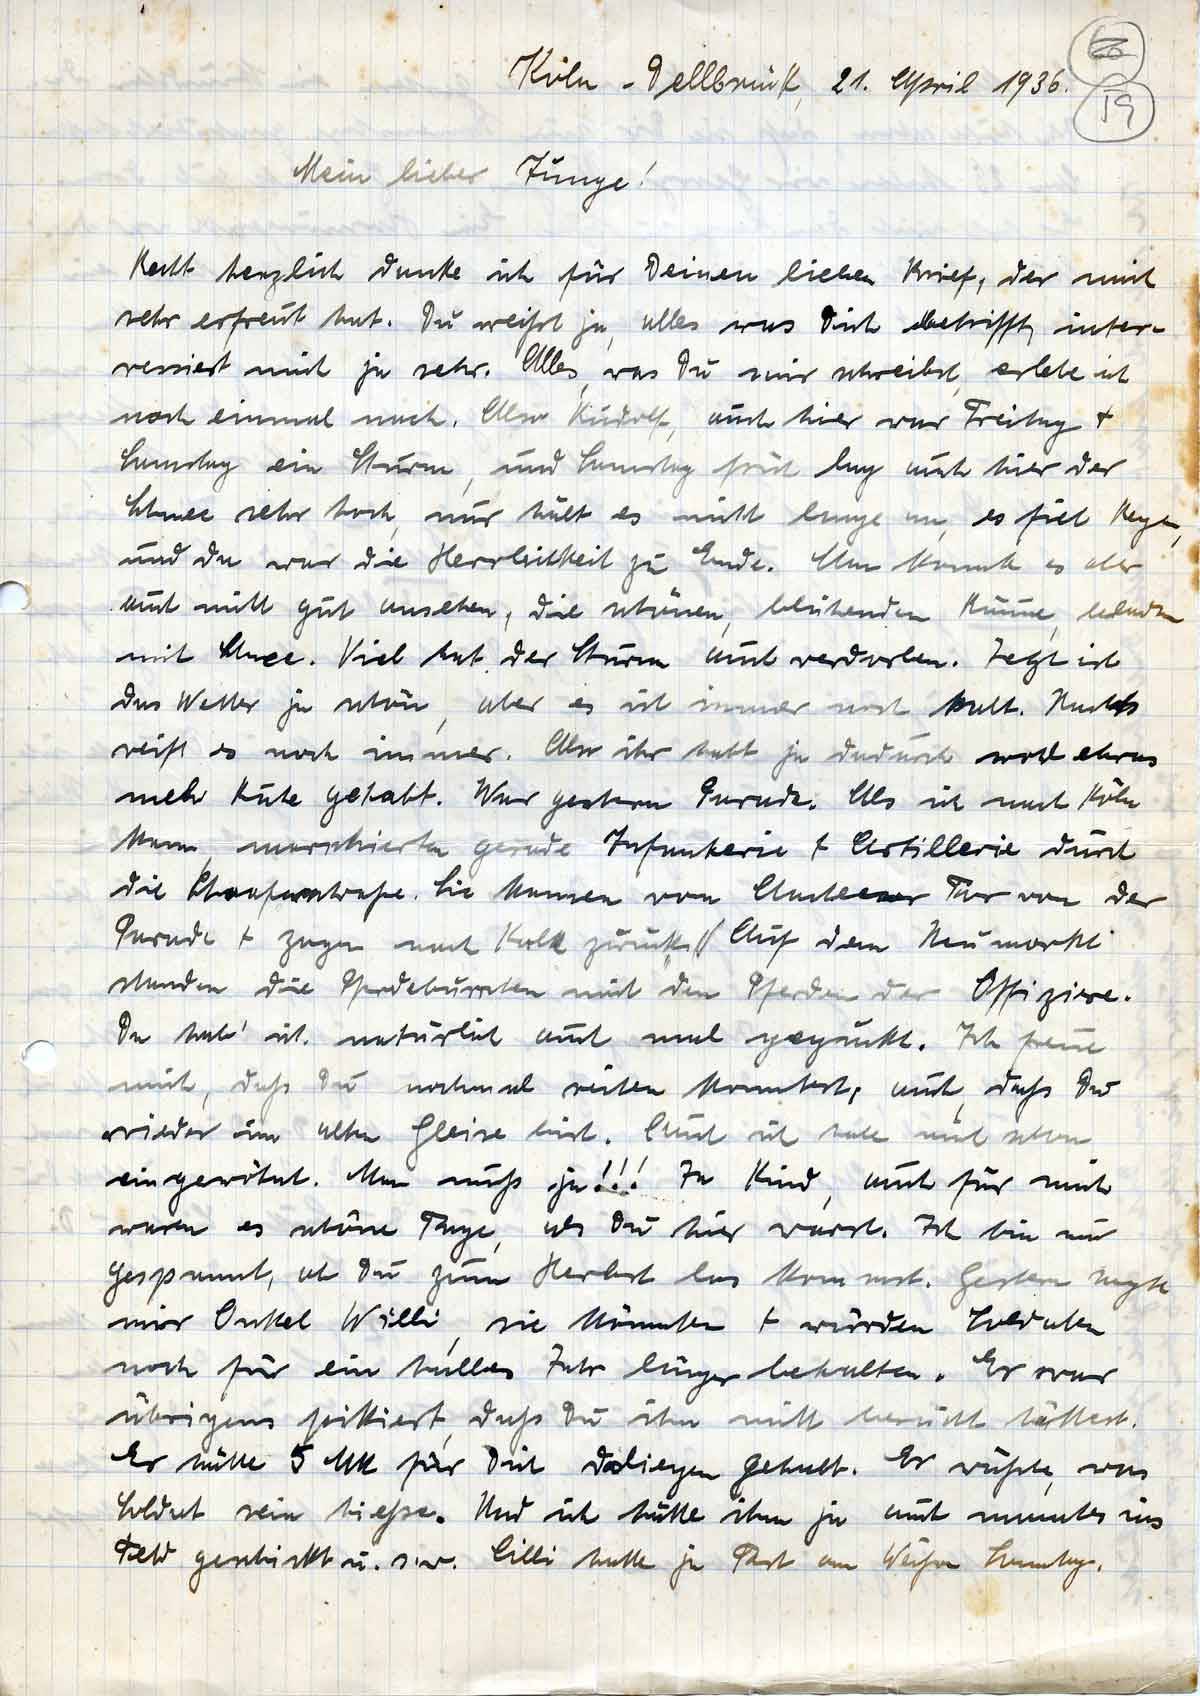 Köln-Dellbrück, 21. April 1936.
19
Mein lieber Junge!
Recht herzlich danke ich für Deinen lieben Brief, der mich
sehr erfreut hat. Du weißt ja, alles was Dich betrifft, inter-
ressiert mich ja sehr. Alles, was Du mir schreibst, erlebe ich
noch einmal nach. Also Rudolf, auch hier war Freitag +
Samstag ein Sturm, und Samstag früh lag auch hier der
Schnee sehr hoch, nur hält es nicht lange an, es fiel Regen,
und da war die Herrlichkeit zu Ende. Man konnte es aber
auch nicht gut ansehen, die schönen, blühenden Bäume, beladen
mit Schnee. Viel hat der Sturm auch verdorben. Jetzt ist
das Wetter ja schön, aber es ist immer noch kalt. Nachts
reift es noch immer. Also ihr habt ja dadurch wohl etwas
mehr Ruhe gehabt. War gestern Parade. Als ich nach Köln
kam, marschierten gerade Infanterie + Artillerie durch
die Schaafenstraße. Sie kamen vom Aachener Tor von der
Parade + zogen nach Kalk zurück. Auf dem Neumarkt
standen die Pferdeburschen mit den Pferden der Offiziere.
Da hab' ich natürlich auch mal geguckt. Ich freue
mich, daß Du nochmal reiten konntest, auch, daß Du
wieder im alten Gleise bist. Auch ich habe mich schon
eingewöhnt. Man muß ja!!! Ja Kind, auch für mich
waren es schöne Tage, als Du hier warst. Ich bin nur
gespannt, ob Du zum Herbst los kommst. Gestern sagte
mir Onkel Willi, sie könnten + würden Soldaten
noch für ein halbes Jahr länger behalten. Er war
übrigens pikkiert, daß Du ihn nicht besucht hättest.
Er hätte 5 Mk für Dich daliegen gehabt. Er wüßte, was
Soldat sein hieße. Und ich hätte ihm ja auch manches ins
Feld geschickt u.s.w. Cilli hatte ja Fest am Weißen Sonntag.